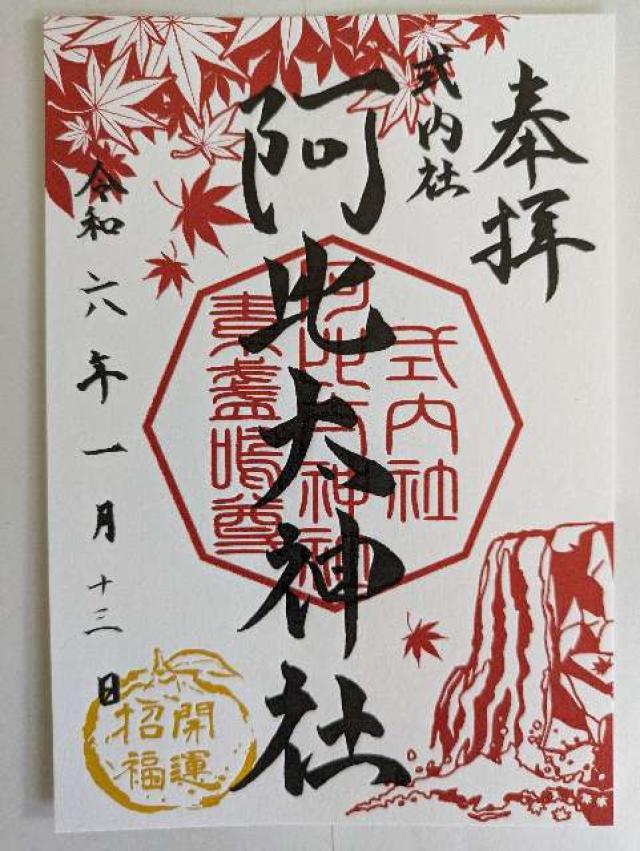 奉拝
式内社
阿比大神社
式内社
阿比大神社
素盞嗚尊
令和六年一月十三日
開運
招福